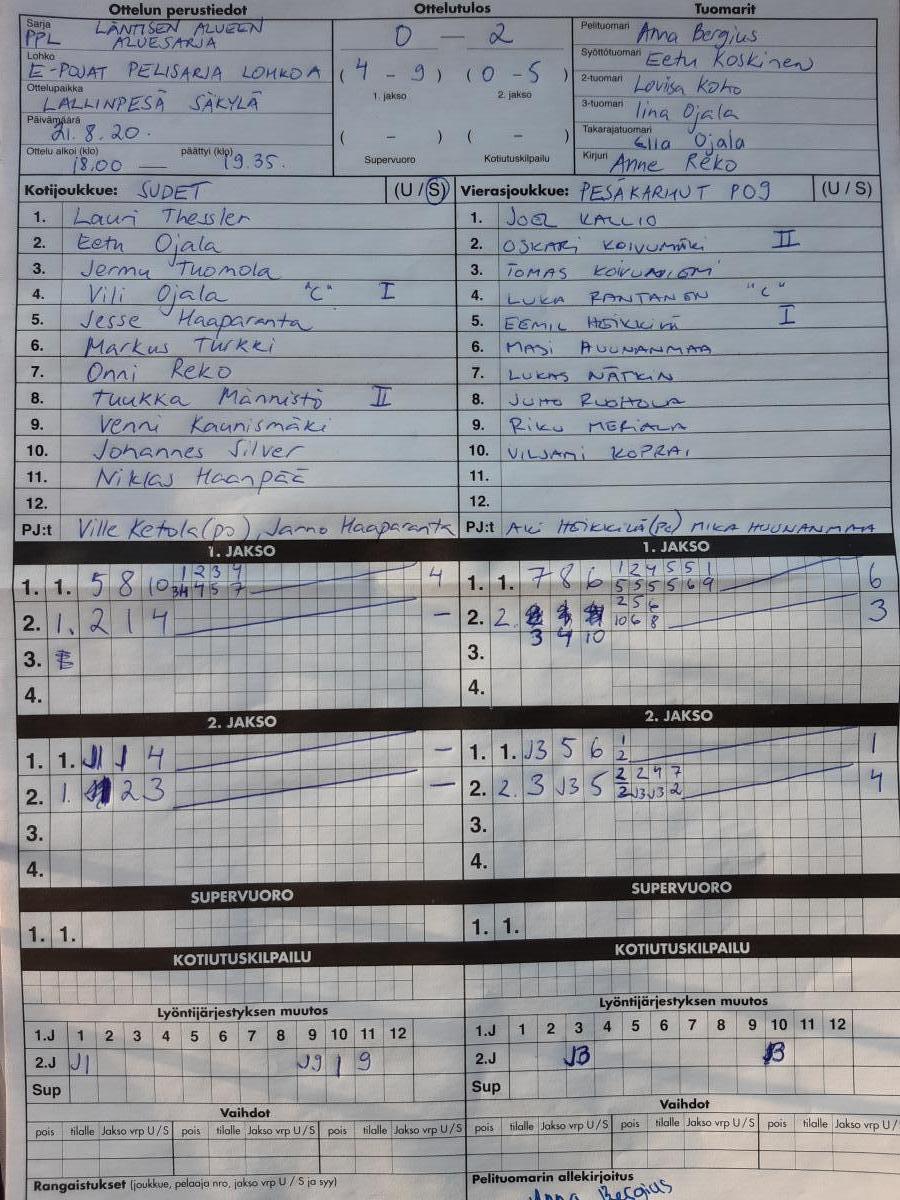 Ottelun perustiedot Ottelutulos Tuomarit
Sarja PPL LÄNTISEN ALUEEN ALUESARJA
Lohko E-POJAT PELISARJA LOHKO A
Ottelupaikka LALLINPESÄ SÄKYLÄ
Päivämäärä 21.8.20.
Ottelu alkoi (klo) 18.00 — päättyi (klo) 19.35.
0 — 2
( 4 - 9 ) ( 0 - 5 )
1. jakso 2. jakso
( - ) ( - )
Supervuoro Kotiutuskilpailu
Pelituomari Anna Bergius
Syöttötuomari Eetu Koskinen
2-tuomari Loviisa Koho
3-tuomari Iina Ojala
Takarajatuomari Ella Ojala
Kirjuri Anne Reko
Kotijoukkue: SUDET (U / S)
1. Lauri Thessler
2. Eetu Ojala
3. Jermu Tuomola
4. Vili Ojala "C" I
5. Jesse Haaparanta
6. Markus Turkki
7. Onni Reko
8. Tuukka Männistö II
9. Venni Kaunismäki
10. Johannes Silver
11. Niklas Haanpää
12.
PJ:t Ville Ketola(pj), Jarno Haaparanta
Vierasjoukkue: PESÄKARHUT P09 (U / S)
1. JOEL KALLIO
2. OSKARI KOIVUMÄKI II
3. TOMAS KOIVUNIEMI
4. LUKA RANTANEN "C"
5. EEMIL HEIKKILÄ I
6. MASI HUUNANMAA
7. LUKAS NÄTKIN
8. JUHO RUOHOLA
9. RIKU MERIALA
10. VILJAMI KOPRAI
11.
12.
PJ:t AKI HEIKKILÄ (PJ) MIKA HUUNANMAA
1. JAKSO
1. 1. 5 8 10 1 2 3 4 4
4 5 7
2. 1. 2 1 4 —
3.
4.
1. JAKSO
1. 1. 7 8 6 1 2 4 5 5 1 6
5 5 5 5 6 9
2. 2. 2 5 6 3
10 6 8
3 4 10
3.
4.
2. JAKSO
1. 1. J1 J 4 —
2. 1. 2 3 —
3.
4.
2. JAKSO
1. 1. J3 5 6 1 1
2
2. 2. 3 J3 5 2 2 4 7 4
2 J3 J3 2
3.
4.
SUPERVUORO
1. 1.
SUPERVUORO
1. 1.
KOTIUTUSKILPAILU
KOTIUTUSKILPAILU
Lyöntijärjestyksen muutos
1.J 1 2 3 4 5 6 7 8 9 10 11 12
2.J J1 J9 1 9
Sup
Lyöntijärjestyksen muutos
1.J 1 2 3 4 5 6 7 8 9 10 11 12
2.J J3 B
Sup
Vaihdot
pois tilalle Jakso vrp U / S pois tilalle Jakso vrp U / S pois tilalle Jakso vrp U / S
Vaihdot
pois tilalle Jakso vrp U / S pois tilalle Jakso vrp U / S pois tilalle Jakso vrp U /
Rangaistukset (joukkue, pelaaja nro, jakso vrp U / S ja syy)
Pelituomarin allekirjoitus
Anna Bergius